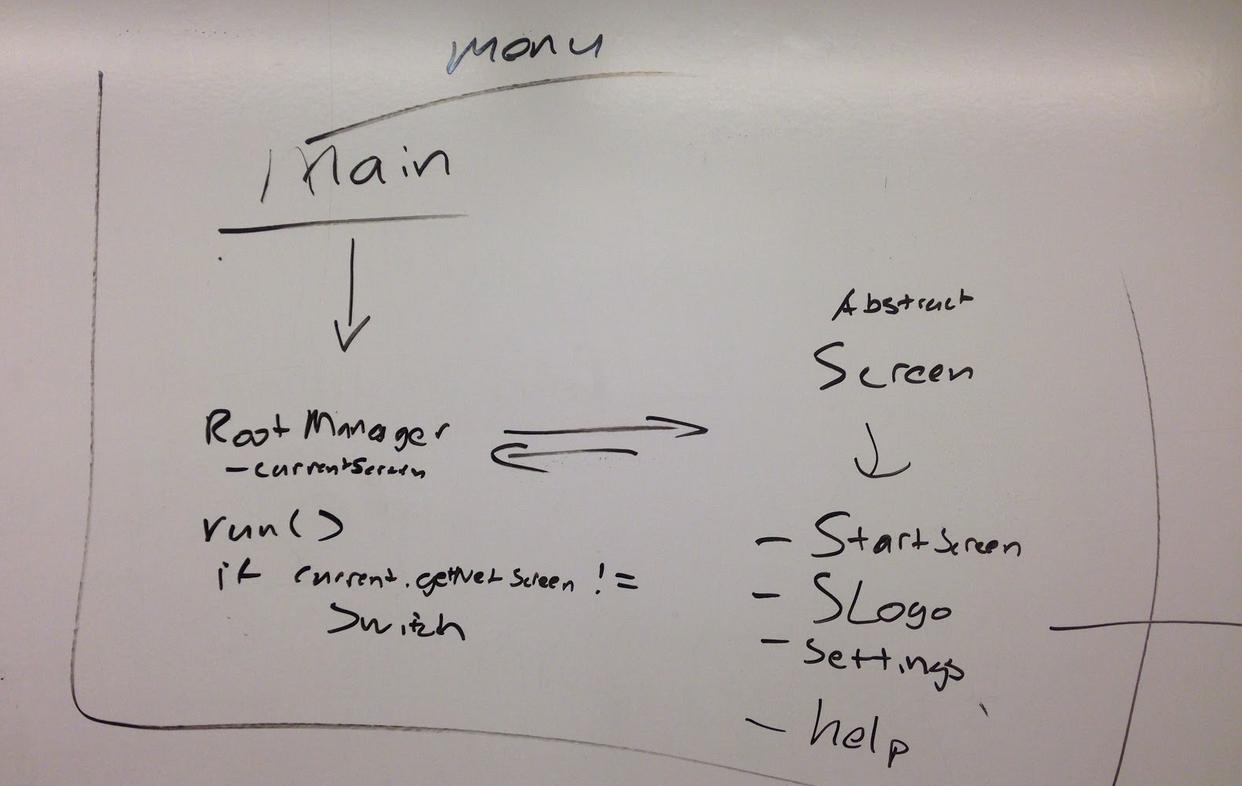 menu
Main
Root Manager
- currentScreen
run()
if current.getNextScreen !=
Switch
Abstract
Screen
- StartScreen
- SLogo
- Settings
- help